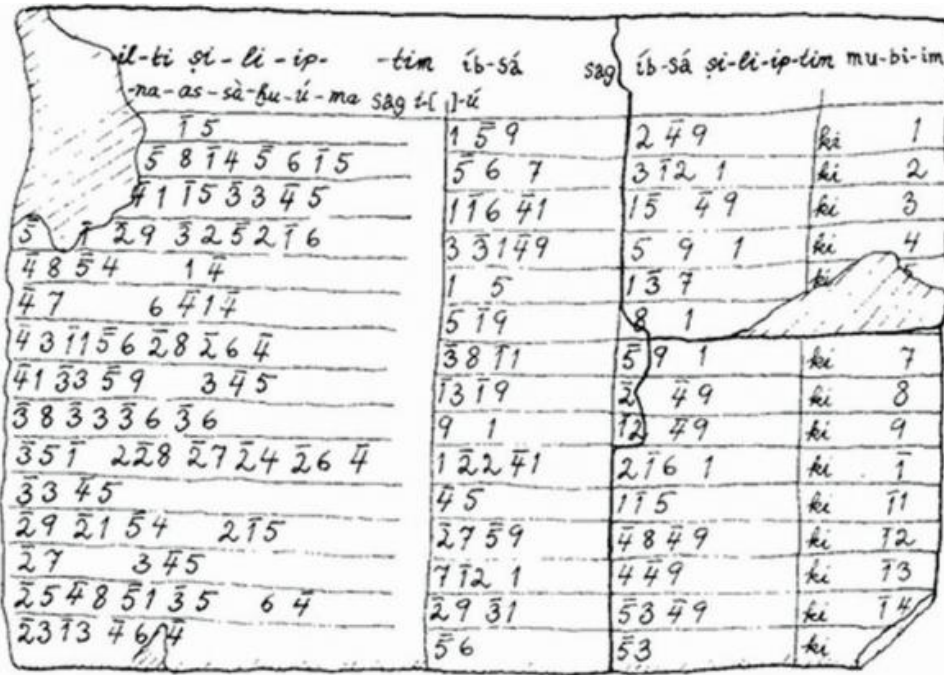 -il-ti ṣi-li-ip- -tim íb-sá sag íb-sá ṣi-li-ip-tim mu-bi-im
-na-as-sà-ḫu-ú-ma sag i-[ ]-ú
1̄5 1 5̄9 2 4̄9 ki 1
5̄8 1̄4 5̄6 1̄5 5̄6 7 3 1̄2 1 ki 2
4̄1 1̄5 3̄3 4̄5 1 1̄6 4̄1 1̄5 4̄9 ki 3
5̄ 1̄ 2̄9 3̄2 5̄2 1̄6 3 3̄1 4̄9 5 9 1 ki 4
4̄8 5̄4 1 4̄ 1 5 1 3̄7 ki
4̄7 6 4̄1 4̄ 5 1̄9 8 1
4̄3 1̄1 5̄6 2̄8 2̄6 4̄ 3̄8 1̄1 5̄9 1 ki 7
4̄1 3̄3 5̄9 3 4̄5 1̄3 1̄9 2̄ 4̄9 ki 8
3̄8 3̄3 3̄6 3̄6 9 1 1̄2 4̄9 ki 9
3̄5 1̄ 2 2̄8 2̄7 2̄4 2̄6 4̄ 1 2̄2 4̄1 2 1̄6 1 ki 1̄
3̄3 4̄5 4̄5 1 1̄5 ki 1̄1
2̄9 2̄1 5̄4 2 1̄5 2̄7 5̄9 4̄8 4̄9 ki 1̄2
2̄7 3 4̄5 7 1̄2 1 4 4̄9 ki 1̄3
2̄5 4̄8 5̄1 3̄5 6 4̄ 2̄9 3̄1 5̄3 4̄9 ki 1̄4
2̄3 1̄3 4̄6 4̄ 5̄6 5̄3 ki